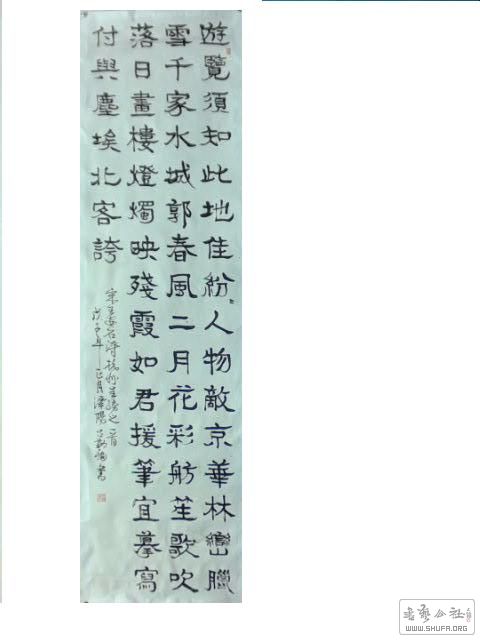 遊覽須知此地佳紛〻人物敵京華林巒臘
雪千家水城郭春風二月花彩舫笙歌吹
落日畫樓燈燭映殘霞如君援筆宜摹寫
付與塵埃北客誇
宋王安石詩杭州呈勝之一首
年正月
書
WWW.SHUFA.ORG